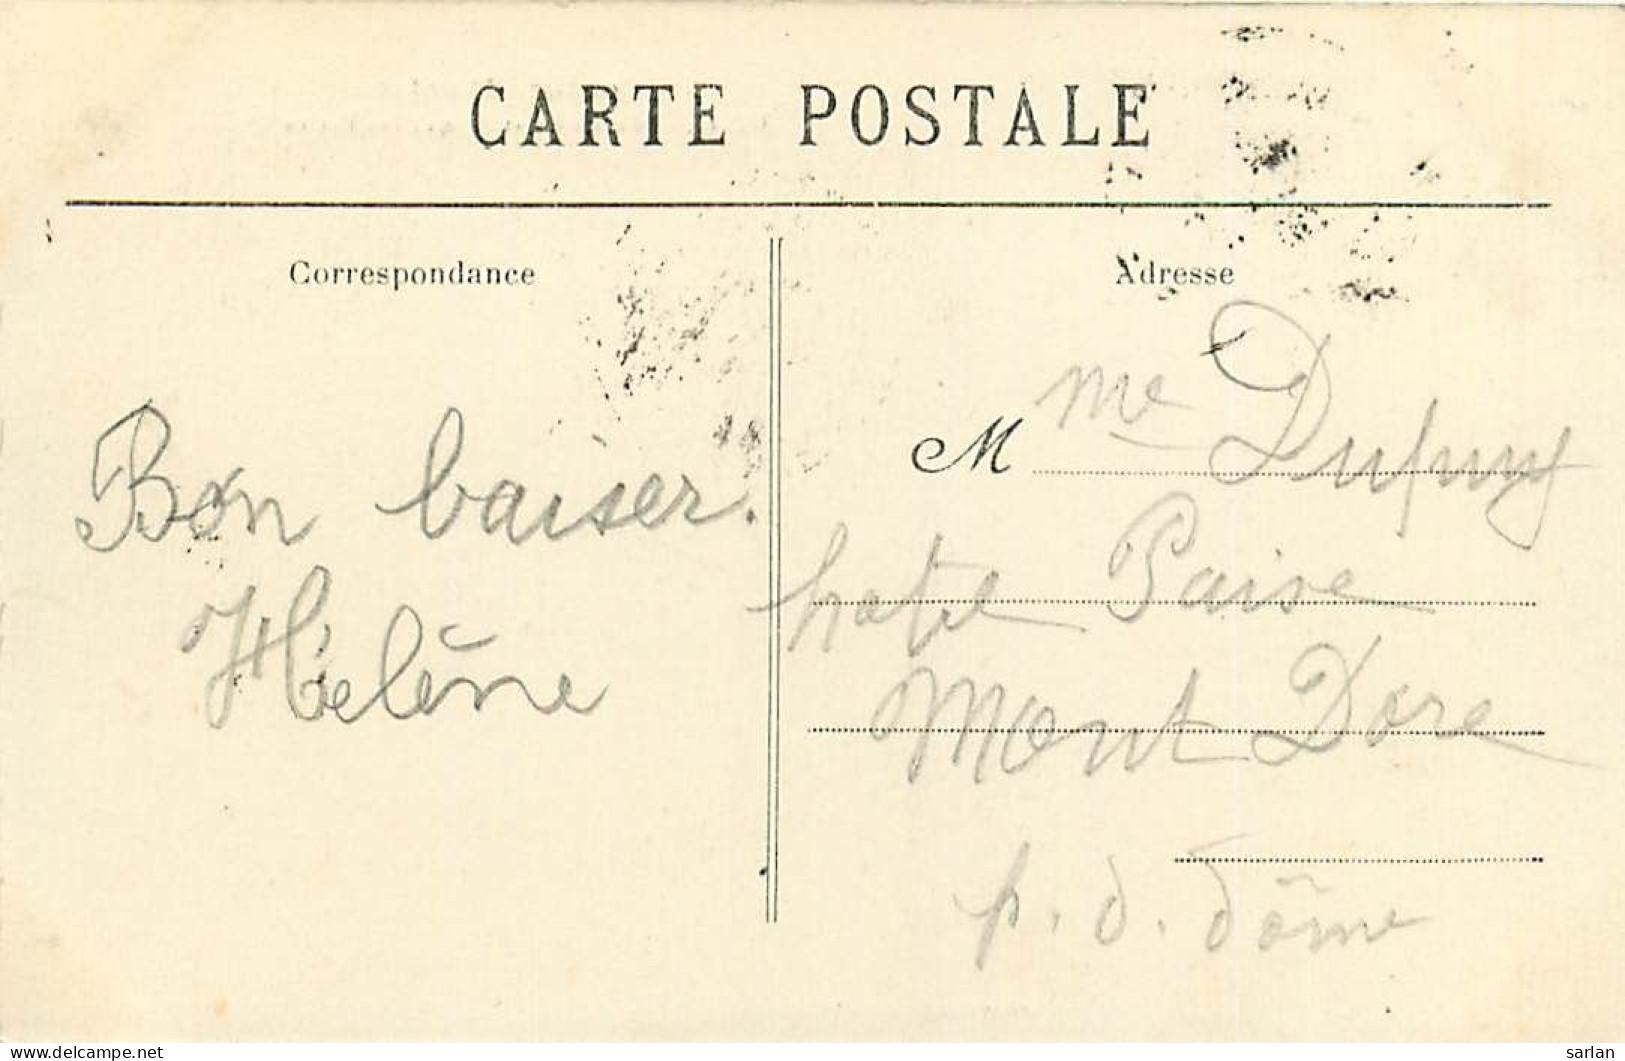 CARTE POSTALE
Correspondance
Bon baiser.
Hélène
Adresse
M me Dupuy
hotel Paise
Mont Dore
p. d. dôme
delcampe.net
sarlan